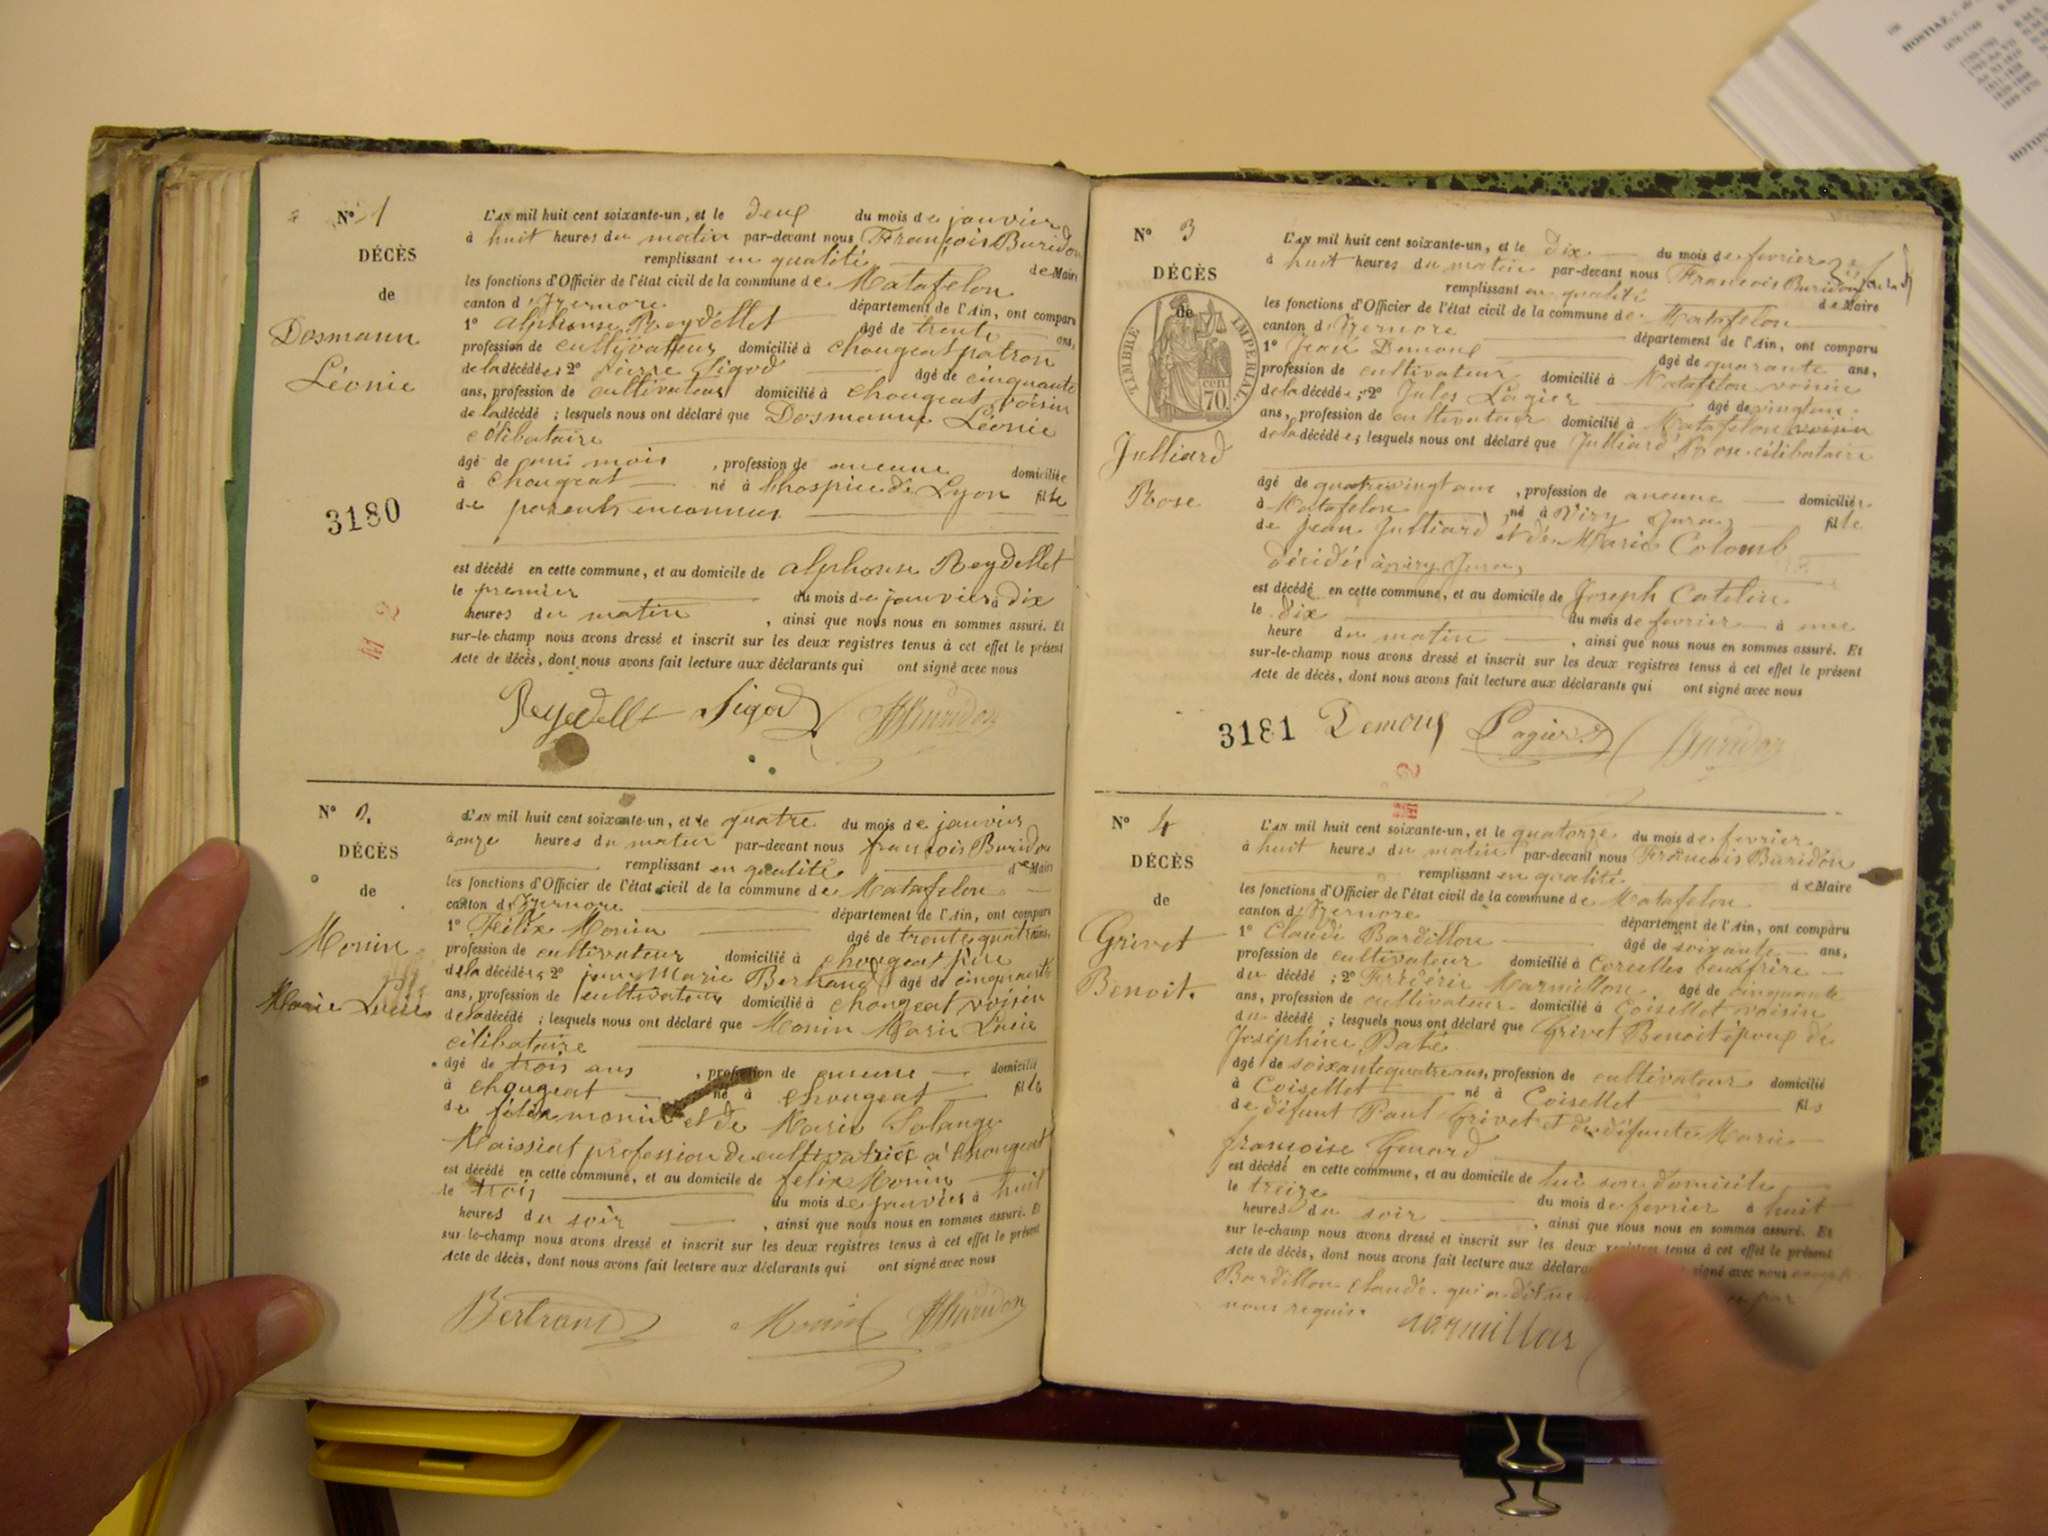 N° 1
DÉCÈS
de
Dosmann
Léonie
3180
L'AN mil huit cent soixante-un, et le deux du mois de janvier
à huit heures du matin par-devant nous François Buridon
remplissant en qualité de Maire
les fonctions d'Officier de l'état civil de la commune de Matafelon
canton d'Izernore département de l'Ain, ont comparu
1° alphonse Reydellet âgé de trente ans,
profession de cultivateur domicilié à chougeat patron
de la décédée; 2° Pierre Sigod âgé de cinquante
ans, profession de cultivateur domicilié à chougeat voisin
de la décédé ; lesquels nous ont déclaré que Dosmanne Léonie
célibataire
âgé de mois , profession de aucune domiciliée
à chougeat né à l'hospice de Lyon fille
de parents inconnus
est décédé en cette commune, et au domicile de alphonse Reydellet
le premier du mois de janvier à dix
heures du matin , ainsi que nous nous en sommes assuré. Et
sur-le-champ nous avons dressé et inscrit sur les deux registres tenus à cet effet le présent
Acte de décès, dont nous avons fait lecture aux déclarants qui ont signé avec nous
Reydellet Sigod Buridon
N° 2.
DÉCÈS
de
Monin
Marie Lucie
L'AN mil huit cent soixante-un, et le quatre du mois de janvier
à onze heures du matin par-devant nous françois Buridon
remplissant en qualité de Maire
les fonctions d'Officier de l'état civil de la commune de Matafelon
canton d'Izernore département de l'Ain, ont comparu
1° Félix Monin âgé de trente quatre ans,
profession de cultivateur domicilié à chougeat père
de la décédée; 2° jean Marie Bertrand âgé de cinquante
ans, profession de cultivateur domicilié à chougeat voisin
de la décédé ; lesquels nous ont déclaré que Monin Marie Lucie
célibataire
âgé de trois ans , profession de aucune domicilié
à chougeat né à chougeat fille
de félix monin et de Marie Solange
Maissiat profession de cultivatrice à chougeat
est décédé en cette commune, et au domicile de félix Monin
le trois du mois de janvier à huit
heures du soir , ainsi que nous nous en sommes assuré. Et
sur-le-champ nous avons dressé et inscrit sur les deux registres tenus à cet effet le présent
Acte de décès, dont nous avons fait lecture aux déclarants qui ont signé avec nous
Bertrand Monin Buridon
N° 3
DÉCÈS
de
TIMBRE IMPÉRIAL
70 cen
Julliard
Rose
L'AN mil huit cent soixante-un, et le dix du mois de fevrier
à huit heures du matin par-devant nous François Buridon
remplissant en qualité de Maire
les fonctions d'Officier de l'état civil de la commune de Matafelon
canton d'Izernore département de l'Ain, ont comparu
1° Jean Demoux âgé de quarante ans,
profession de cultivateur domicilié à Matafelon voisin
de la décédée; 2° Jules Lagier âgé de
ans, profession de cultivateur domicilié à Matafelon voisin
de la décédée; lesquels nous ont déclaré que Julliard Rose célibataire
âgé de quatrevingt ans , profession de aucune domiciliée
à Matafelon né à Viry Jura fille
de jean Julliard et de Marie Colomb
décédés à viry Jura
est décédé en cette commune, et au domicile de Joseph Catelin
le dix du mois de fevrier à une
heure du matin , ainsi que nous nous en sommes assuré. Et
sur-le-champ nous avons dressé et inscrit sur les deux registres tenus à cet effet le présent
Acte de décès, dont nous avons fait lecture aux déclarants qui ont signé avec nous
3181 Demoux Lagier Buridon
N° 4
DÉCÈS
de
Grivet
Benoit.
L'AN mil huit cent soixante-un, et le quatorze du mois de fevrier
à huit heures du matin par-devant nous François Buridon
remplissant en qualité de Maire
les fonctions d'Officier de l'état civil de la commune de Matafelon
canton d'Izernore département de l'Ain, ont comparu
1° Claude Bardillon âgé de soixante ans,
profession de cultivateur domicilié à Corcelles beaufrère
du décédé ; 2° Fréderic Marmillon âgé de cinquante
ans, profession de cultivateur domicilié à Coisellet voisin
du décédé ; lesquels nous ont déclaré que Grivet Benoit époux de
Joséphine
âgé de soixante quatre ans, profession de cultivateur domicilié
à Coisellet né à Coisellet fils
de défunt Paul Grivet et de défunte Marie
françoise
est décédé en cette commune, et au domicile de lui son domicile
le treize du mois de fevrier à huit
heures du soir , ainsi que nous nous en sommes assuré. Et
sur le-champ nous avons dressé et inscrit sur les deux registres tenus à cet effet le présent
Acte de décès, dont nous avons fait lecture aux signé avec nous
Bardillon Claude qui a dit ne
nous requis.